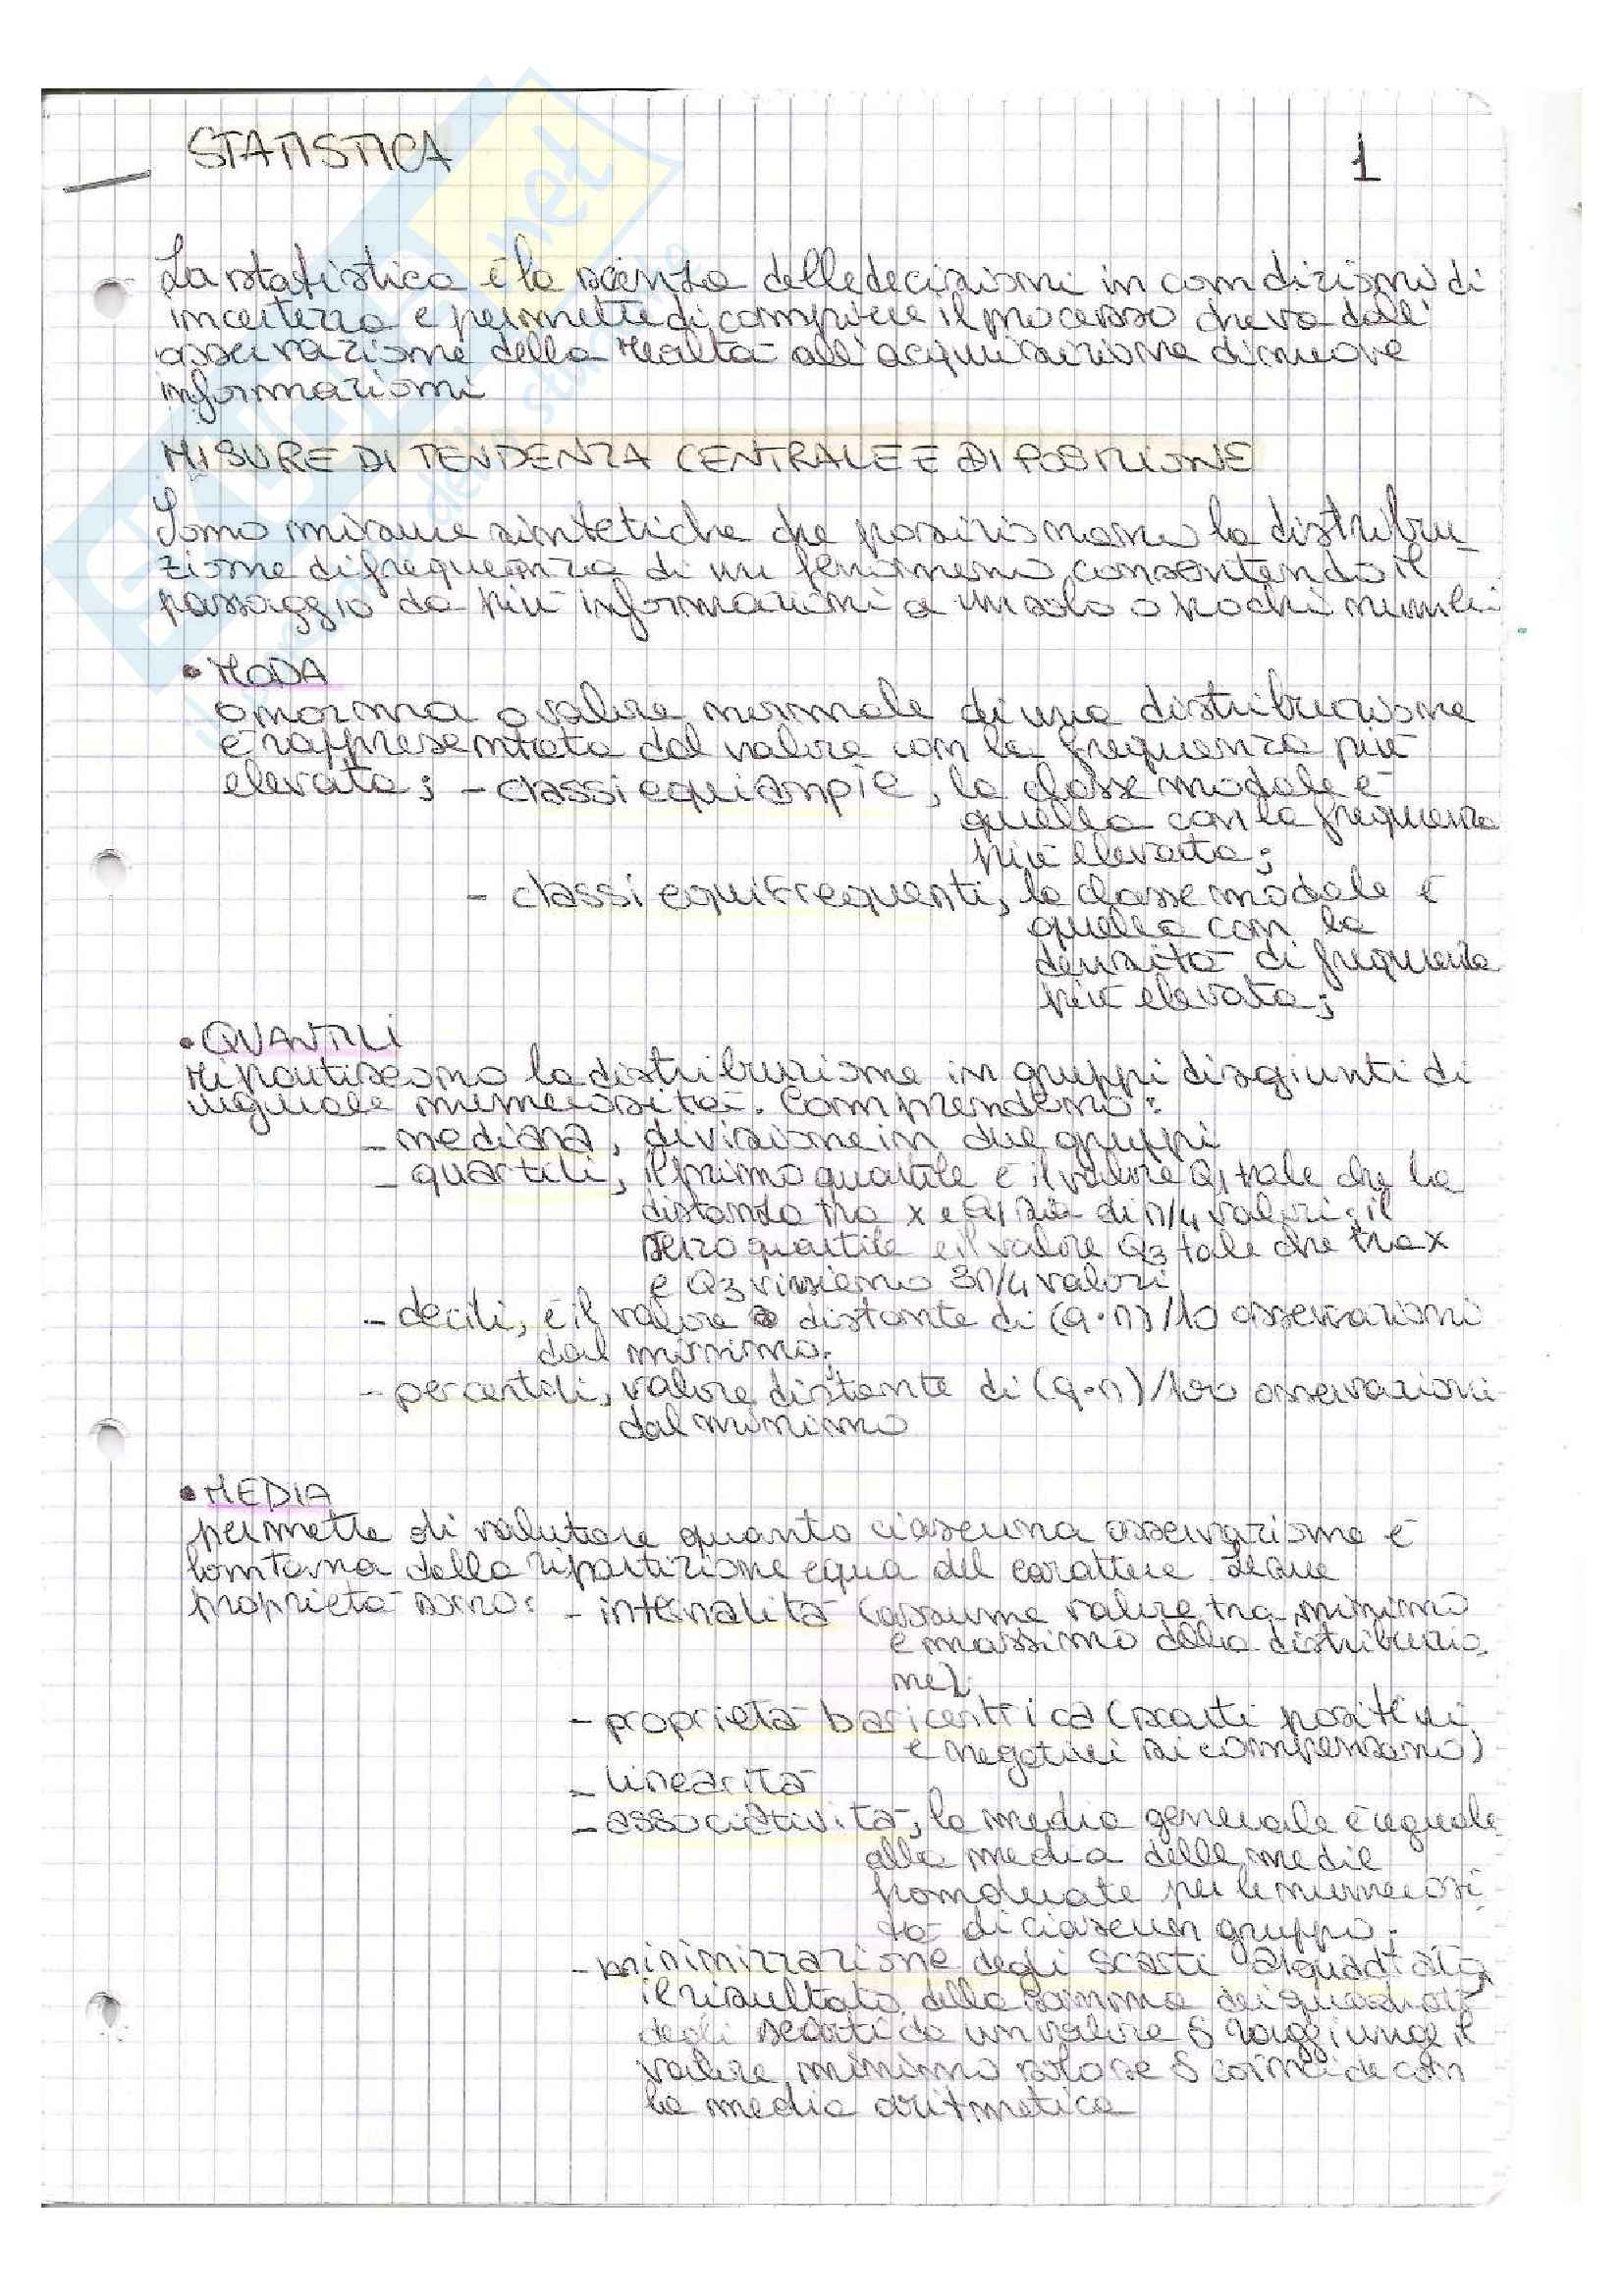 STATISTICA
1
La statistica è la scienza delle decisioni in condizioni di
incertezza e permette di compiere il processo che va dall'
osservazione della realtà all'acquisizione di nuove
informazioni
MISURE DI TENDENZA CENTRALE E DI POSIZIONE
Sono misure sintetiche che posizionano la distribu_
zione di frequenza di un fenomeno, consentendo il
passaggio da più informazioni a un solo o pochi numeri
• MODA
o norma o valore normale di una distribuzione
è rappresentata dal valore con la frequenza più
elevata; - classi equiampie, la classe modale è
quella con la frequenza
più elevata;
- classi equifrequenti, la classe modale è
quella con la
densità di frequenza
più elevata;
• QUANTILI
ripartiscono la distribuzione in gruppi disgiunti di
uguale numerosità. Comprendono:
- mediana, divisione in due gruppi
- quartili, il primo quartile è il valore Q1 tale che la
distanza tra x e Q1 sia di n/4 valori; il
terzo quartile è il valore Q3 tale che tra x
e Q3 vi siano 3n/4 valori
- decili, è il valore distante di (q·n)/10 osservazioni
dal minimo;
- percentili, valore distante di (q·n)/100 osservazioni
dal minimo
• MEDIA
permette di valutare quanto ciascuna osservazione è
lontana dalla ripartizione equa del carattere. Le sue
proprietà sono: - internalità (assume valore tra minimo
e massimo della distribuzio_
ne);
- proprietà baricentrica (scarti positivi
e negativi si compensano)
- linearità
- associatività, la media generale è uguale
alla media delle medie
ponderate per le numerosi_
tà di ciascun gruppo.
- minimizzazione degli scarti al quadrato,
il risultato della somma dei quadrati
degli scarti da un valore S raggiunge il
valore minimo solo se S coincide con
la media aritmetica
ExVoi net
dello studente